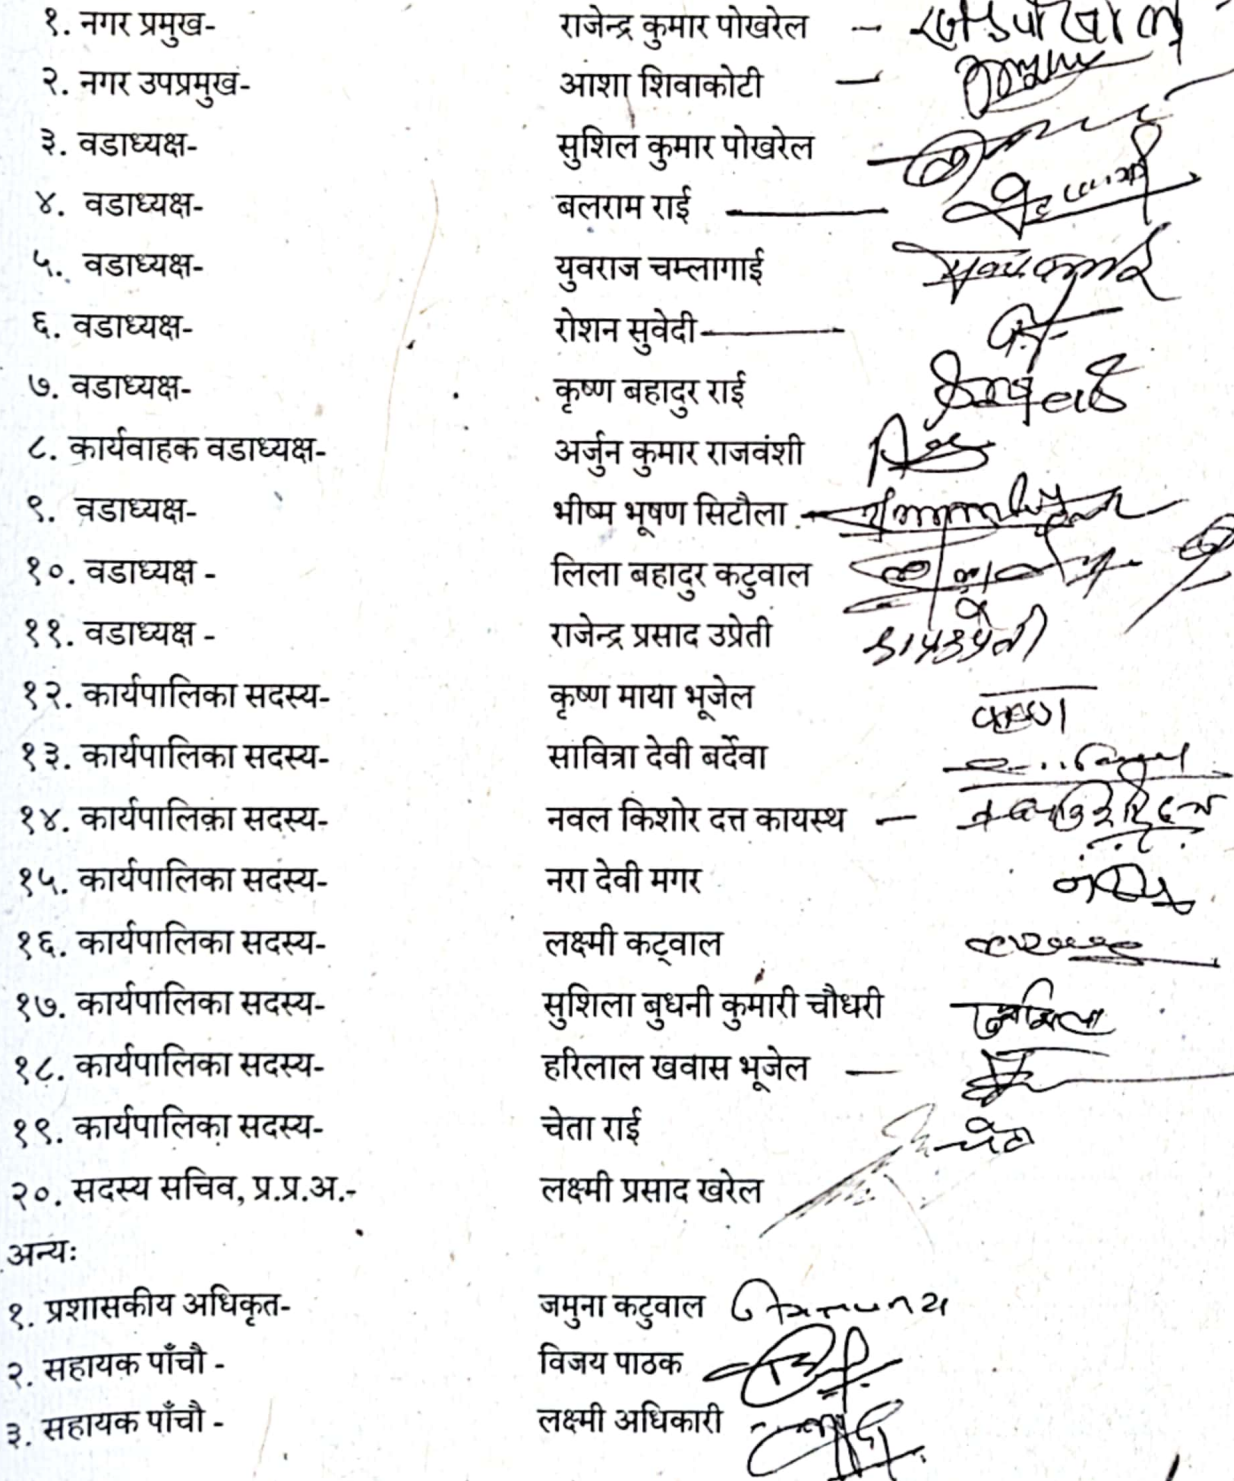 १. नगर प्रमुख- राजेन्द्र कुमार पोखरेल –
२. नगर उपप्रमुख- आशा शिवाकोटी –
३. वडाध्यक्ष- सुशिल कुमार पोखरेल
४. वडाध्यक्ष- बलराम राई
५. वडाध्यक्ष- युवराज चम्लागाई
६. वडाध्यक्ष- रोशन सुवेदी
७. वडाध्यक्ष- कृष्ण बहादुर राई
८. कार्यवाहक वडाध्यक्ष- अर्जुन कुमार राजवंशी
९. वडाध्यक्ष- भीष्म भूषण सिटौला
१०. वडाध्यक्ष - लिला बहादुर कटुवाल
११. वडाध्यक्ष - राजेन्द्र प्रसाद उप्रेती
१२. कार्यपालिका सदस्य- कृष्ण माया भूजेल
१३. कार्यपालिका सदस्य- सावित्रा देवी बर्देवा
१४. कार्यपालिका सदस्य- नवल किशोर दत्त कायस्थ –
१५. कार्यपालिका सदस्य- नरा देवी मगर
१६. कार्यपालिका सदस्य- लक्ष्मी कट्वाल
१७. कार्यपालिका सदस्य- सुशिला बुधनी कुमारी चौधरी सुशिला
१८. कार्यपालिका सदस्य- हरिलाल खवास भूजेल –
१९. कार्यपालिका सदस्य- चेता राई चेता
२०. सदस्य सचिव, प्र.प्र.अ.- लक्ष्मी प्रसाद खरेल
अन्यः
१. प्रशासकीय अधिकृत- जमुना कटुवाल
२. सहायक पाँचौ - विजय पाठक
३. सहायक पाँचौ - लक्ष्मी अधिकारी